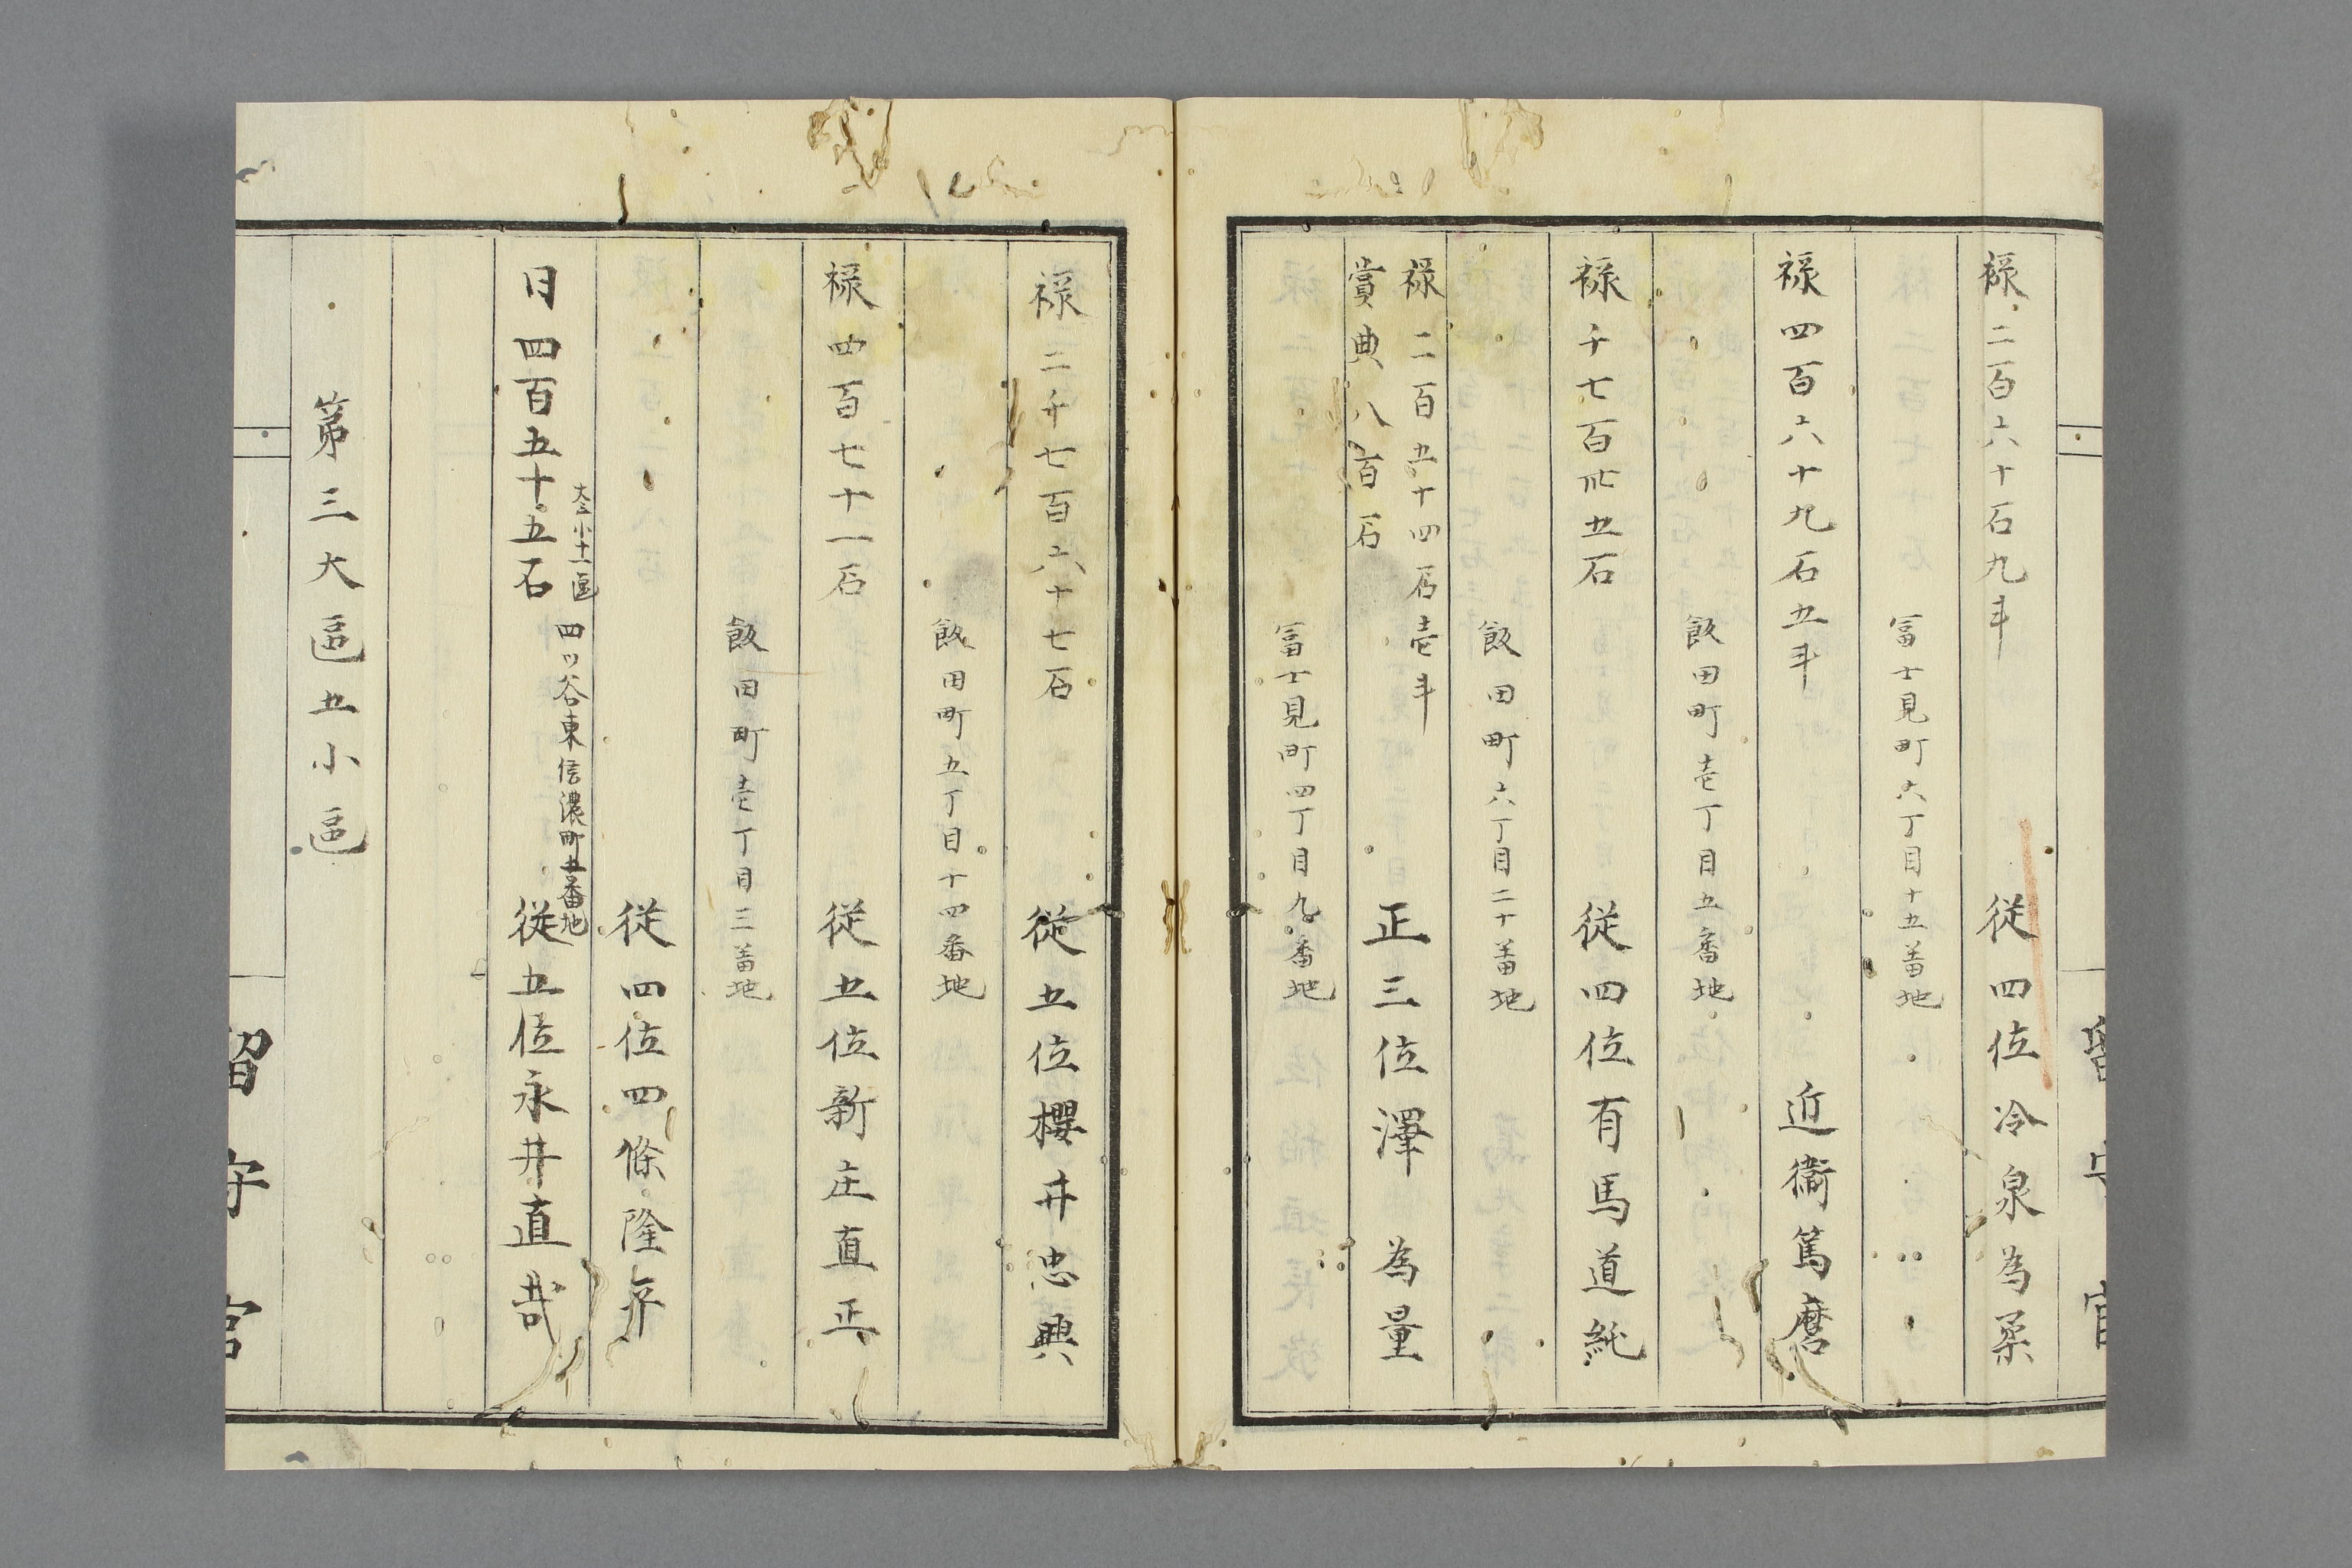 禄二百六十石九斗　従四位冷泉為柔
冨士見町六丁目十五番地
禄四百六十九石五斗　近衞篤麿
飯田町壱丁目五番地
禄千七百卅五石　従四位有馬道純
飯田町六丁目二十番地
禄二百五十四石壱斗
賞典八百石　正三位澤　為量
冨士見町四丁目九番地
禄二千七百六十七石　従五位櫻井忠興
飯田町五丁目十四番地
禄四百七十一石　従五位新庄直正
飯田町壱丁目三番地
従四位四條隆平
大三小十一區　四ッ谷東信濃町五番地
日四百五十五石　従五位永井直哉
第三大區五小區
留守官